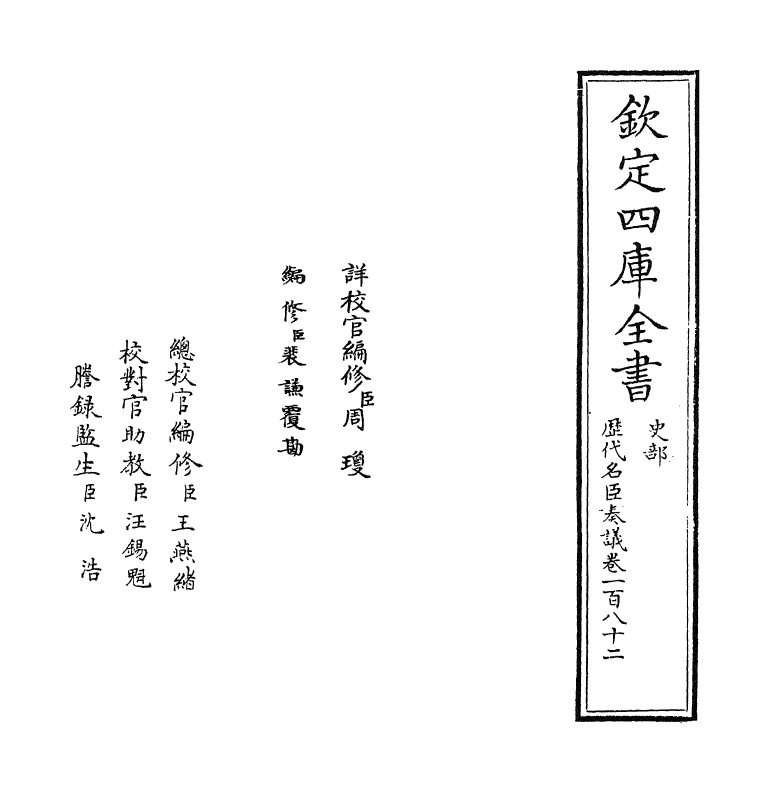 欽定四庫全書
史部
歷代名臣奏議卷一百八十二
詳校官編修臣周瓊
編修臣裴謙覆勘
總校官編修臣王燕緒
校對官助教臣汪錫魁
謄録監生臣沈浩